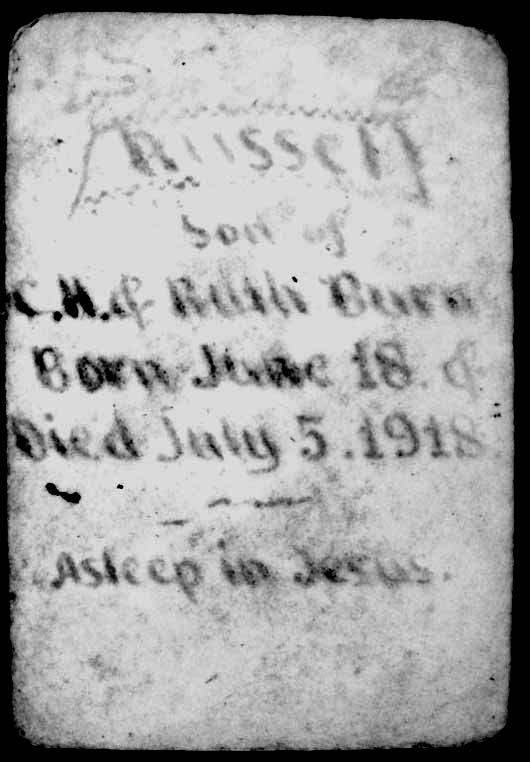 Russel
Son of
C.H. & Ruth Burn
Born June 18. &
Died July 5. 1918.
Asleep in Jesus.